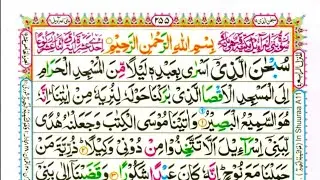 ٢٥٥
بِسْمِ اللهِ الرَّحْمٰنِ الرَّحِيْمِ
سُبْحٰنَ الَّذِيْٓ اَسْرٰى بِعَبْدِهٖ لَيْلًا مِّنَ الْمَسْجِدِ الْحَرَامِ
اِلَى الْمَسْجِدِ الْاَقْصَا الَّذِيْ بٰرَكْنَا حَوْلَهٗ لِنُرِيَهٗ مِنْ اٰيٰتِنَا اِنَّهٗ
هُوَ السَّمِيْعُ الْبَصِيْرُ ۝١ وَاٰتَيْنَا مُوْسَى الْكِتٰبَ وَجَعَلْنٰهُ هُدًى
لِّبَنِيْٓ اِسْرَآءِيْلَ اَلَّا تَتَّخِذُوْا مِنْ دُوْنِيْ وَكِيْلًا ۝٢ ذُرِّيَّةَ مَنْ
حَمَلْنَا مَعَ نُوْحٍ اِنَّهٗ كَانَ عَبْدًا شَكُوْرًا ۝٣ وَقَضَيْنَآ اِلٰى بَنِيْٓ
In Shuuraa A11